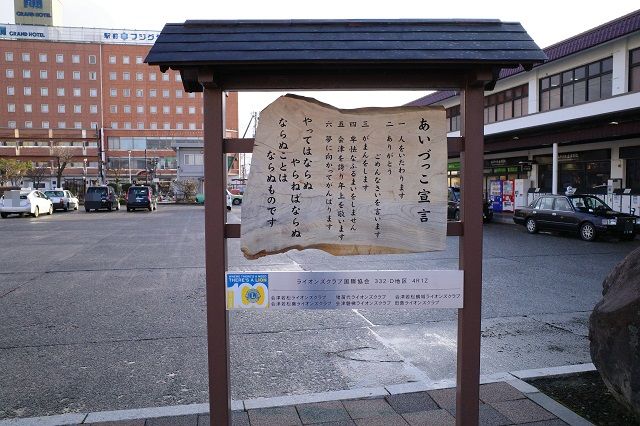 FUJI
GRAND HOTEL
GRAND HOTEL
駅前フジグランドホテル
あいづっこ宣言
一 人をいたわります
二 ありがとう
ごめんなさいを言います
三 がまんをします
四 卑怯なふるまいをしません
五 会津を誇り年上を敬います
六 夢に向かってがんばります
やってはならぬ
やらねばならぬ
ならぬことは
ならぬものです
WHERE THERE'S A NEED
THERE'S A LION
ライオンズクラブ国際協会 332-D地区 4R1Z
会津若松ライオンズクラブ 猪苗代ライオンズクラブ 会津若松鶴城ライオンズクラブ
会津若松葵ライオンズクラブ 会津磐梯ライオンズクラブ 田島ライオンズクラブ